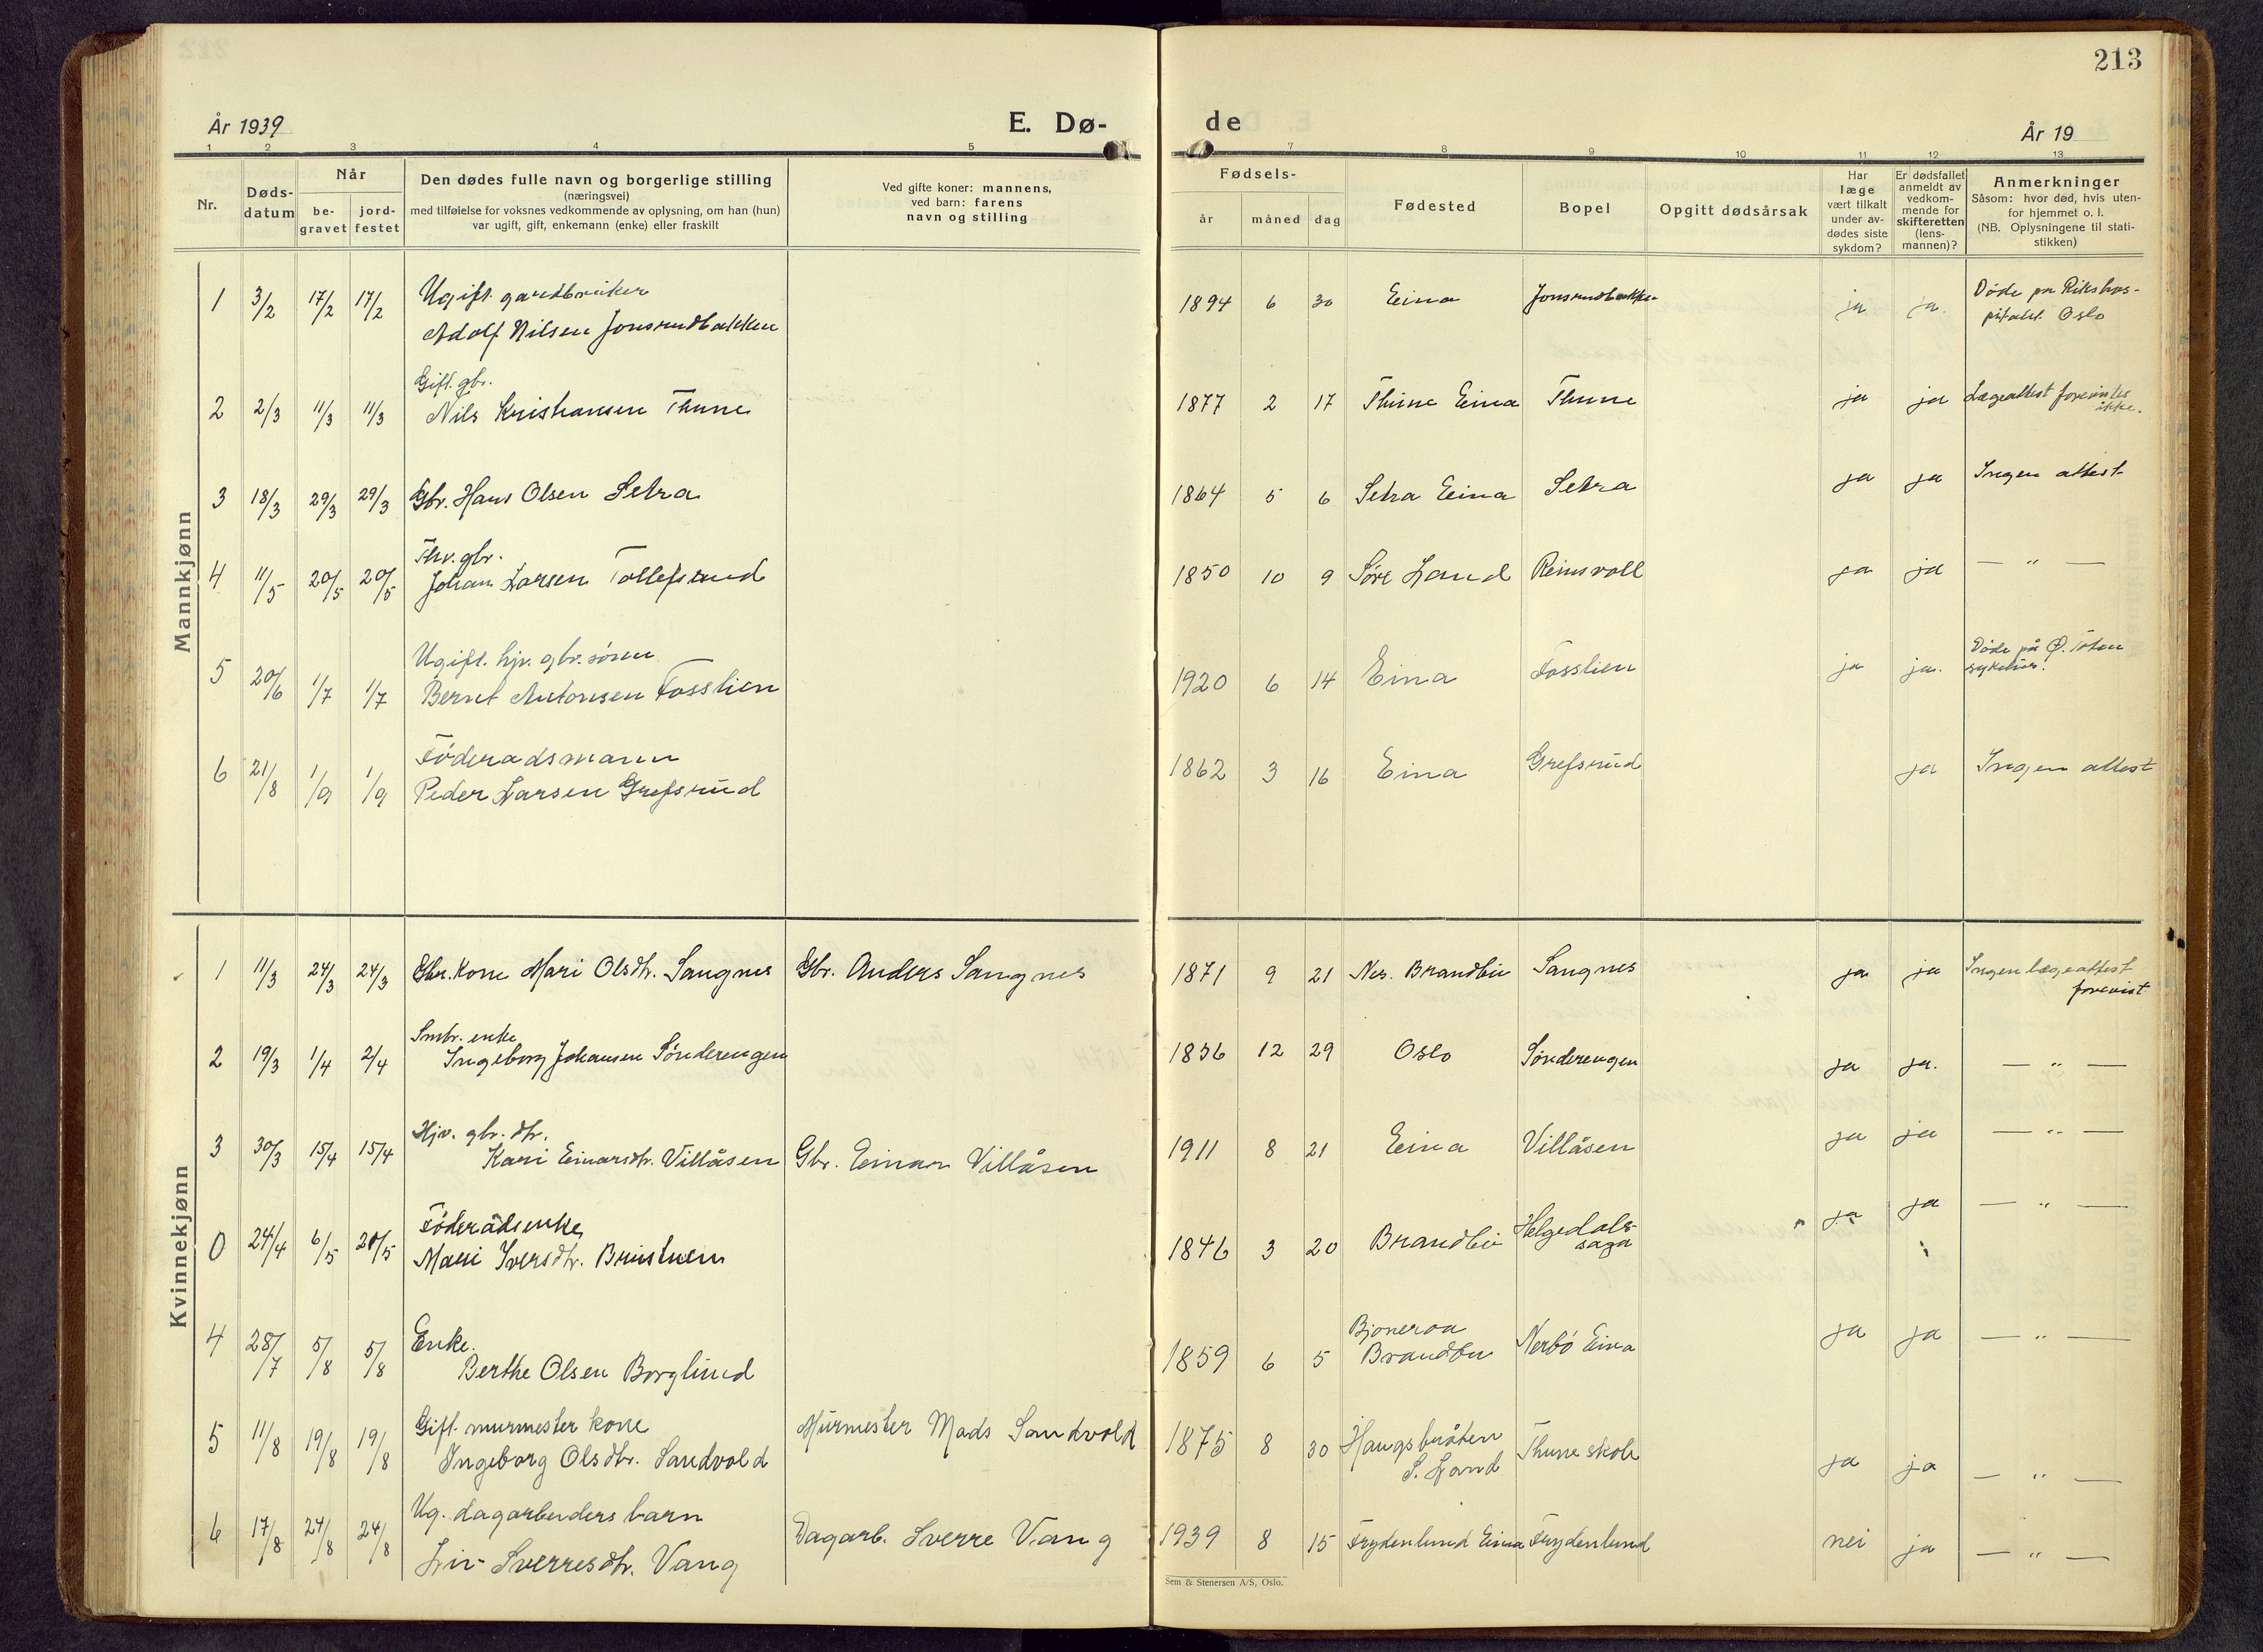 213
År 1939
E. Dø-
de
År 19
1 2 3 4 5 7 8 9 10 11 12 13
Nr.
Døds-
datum
Når
be-
gravet
jord-
festet
Den dødes fulle navn og borgerlige stilling
(næringsvei)
med tilføielse for voksnes vedkommende av oplysning, om han (hun)
var ugift, gift, enkemann (enke) eller fraskilt
Ved gifte koner: mannens,
ved barn: farens
navn og stilling
Fødsels-
år
måned
dag
Fødested
Bopel
Opgitt dødsårsak
Har
læge
vært tilkalt
under av-
dødes siste
sykdom?
Er dødsfallet
anmeldt av
vedkom-
mende for
skifteretten
(lens-
mannen)?
Anmerkninger
Såsom: hvor død, hvis uten-
for hjemmet o. l.
(NB. Oplysningene til stati-
stikken)
Mannkjønn
1 3/2 17/2 17/2 Ugift. gardbruker
Adolf Nilsen Jonsrudbakken
1894 6 30 Eina Jonsrudbakken ja ja. Döde på Rikshos-
pitalet Oslo
2 2/3 11/3 11/3 Gift. gbr.
Nils Kristiansen Thune
1877 2 17 Thune Eina Thune ja ja Lægeattest forevistes
ikke.
3 18/3 29/3 29/3 Gbr. Hans Olsen Setra
1864 5 6 Setra Eina Setra ja ja Ingen attest
4 11/5 20/5 20/5 Fhv. gbr.
Johan Larsen Tollefsrud
1850 10 9 Söre Land Reinsvoll ja ja — " —
5 20/6 1/7 1/7 Ugift. hjv. gbr. sönn
Bernt Antonsen Fosslien
1920 6 14 Eina Fosslien ja ja. Döde på Ø. Toten
sykehus.
6 21/8 1/9 1/9 Föderadsmann
Peder Larsen Grefsrud
1862 3 16 Eina Grefsrud ja Ingen attest
Kvinnekjønn
1 11/3 24/3 24/3 Gbr. kone Mari Olsdtr. Sangnes Gbr. Anders Sangnes
1871 9 21 Nes. Brandbu Sangnes ja ja Ingen lægeattest
forevist
2 19/3 1/4 2/4 Smbr. enke
Ingeborg Johansen Sönderengen
1836 12 29 Oslo Sönderengen ja ja. — " —
3 30/3 15/4 15/4 Hjv. gbr. dtr.
Kari Einarsdtr. Villåsen Gbr. Einar Villåsen
1911 8 21 Eina Villåsen ja ja — " —
0 24/4 6/5 20/5 Föderådsenke
Mari Iversdtr.
1846 3 20 Brandbu Helgedals-
saga ja ja — " —
4 28/7 5/8 5/8 Enke.
Berthe Olsen Borglund
1859 6 5 Bjoneroa
Brandbu Nerbö Eina ja ja — " —
5 11/8 19/8 19/8 Gift. murmester kone
Ingeborg Olsdtr. Sandvold Murmester Mads Sandvold
1875 8 30 Haugsbråten
S. Land Thune skole ja ja — " —
6 17/8 24/8 24/8 Ug. dagarbeiders barn
Liv Sverresdtr. Vang Dagarb. Sverre Vang
1939 8 15 Frydenlund Eina Frydenlund nei ja — " —
Sem & Stenersen A/S, Oslo.